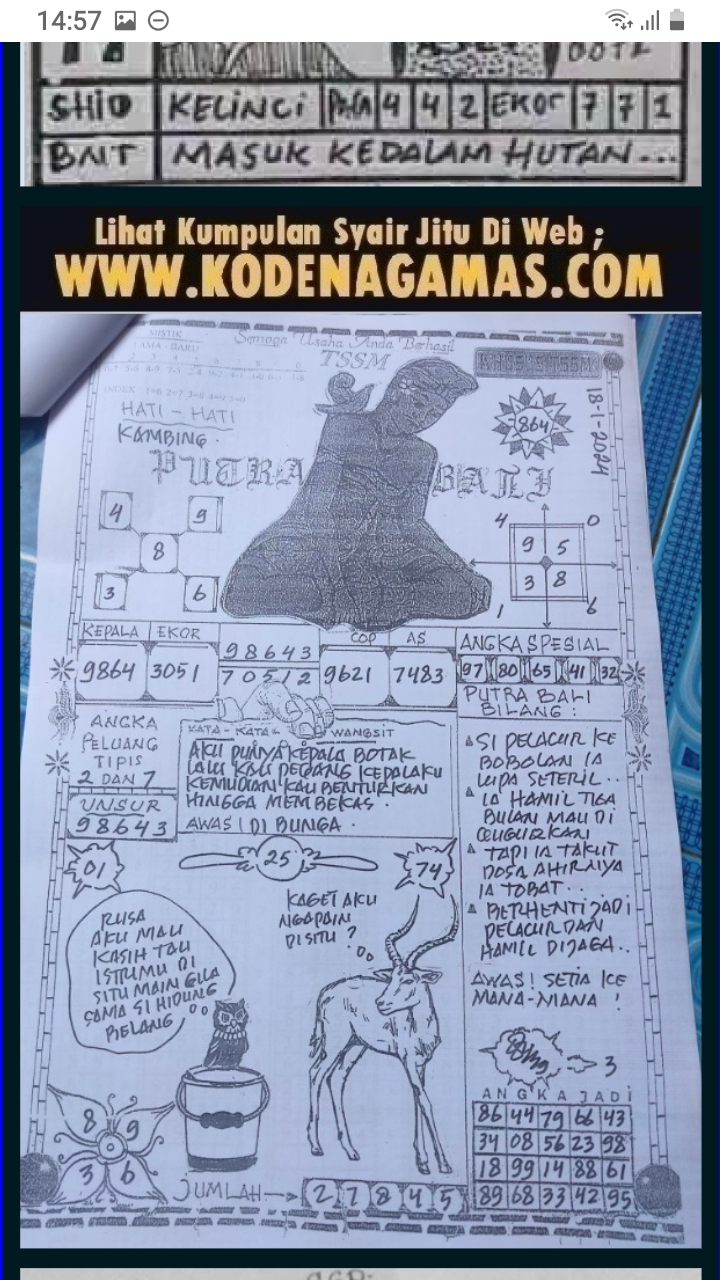 14:57
SHIO KELINCI 4 4 2 EKOR 7 7 1
BMT MASUK KEDALAM HUTAN...
Lihat Kumpulan Syair Jitu Di Web ;
WWW.KODENAGAMAS.COM
MISTIK
LAMA - BARU
Semoga Usaha Anda Berhasil
TSSM
HATI - HATI
KAMBING.
864
18-1-2024
PUTRA BALI
4 9
8
3 6
4 0
9 5
3 8
1 6
KEPALA EKOR
9864 3051
98643
70512
COP AS
9621 7483
ANGKA SPESIAL
97 80 65 41 32
ANGKA
PELUANG
TIPIS
2 DAN 7
UNSUR
98643
KATA - KATA WANGSIT
AKU PUNYA KEPALA BOTAK
LALU KAU PEGANG KEPALAKU
KEMUDIAN KAU BENTURKAN
HINGGA MEMBEKAS.
AWAS! DI BUNGA.
PUTRA BALI
BILANG :
SI PELACUR KE
BOBOLAN IA
LUPA SETERIL..
IA HAMIL TIGA
BULAN MAU DI
GUGURKAN
TAPI IA TAKUT
DOSA AHIRNYA
IA TOBAT..
BERHENTI JADI
PELACUR DAN
HAMIL DIJAGA..
AWAS! SETIA KE
MANA-MANA !
01
25
74
RUSA
AKU MAU
KASIH TAU
ISTRIMU DI
SITU MAIN GILA
SAMA SI HIDUNG
BELANG
KAGET AKU
NGAPAIN
DISITU ?
3
ANGKA JADI
86 44 79 66 43
34 08 56 23 98
18 99 14 88 61
89 68 33 42 95
8 9
0
3 6
JUMLAH 2 7 8 4 5